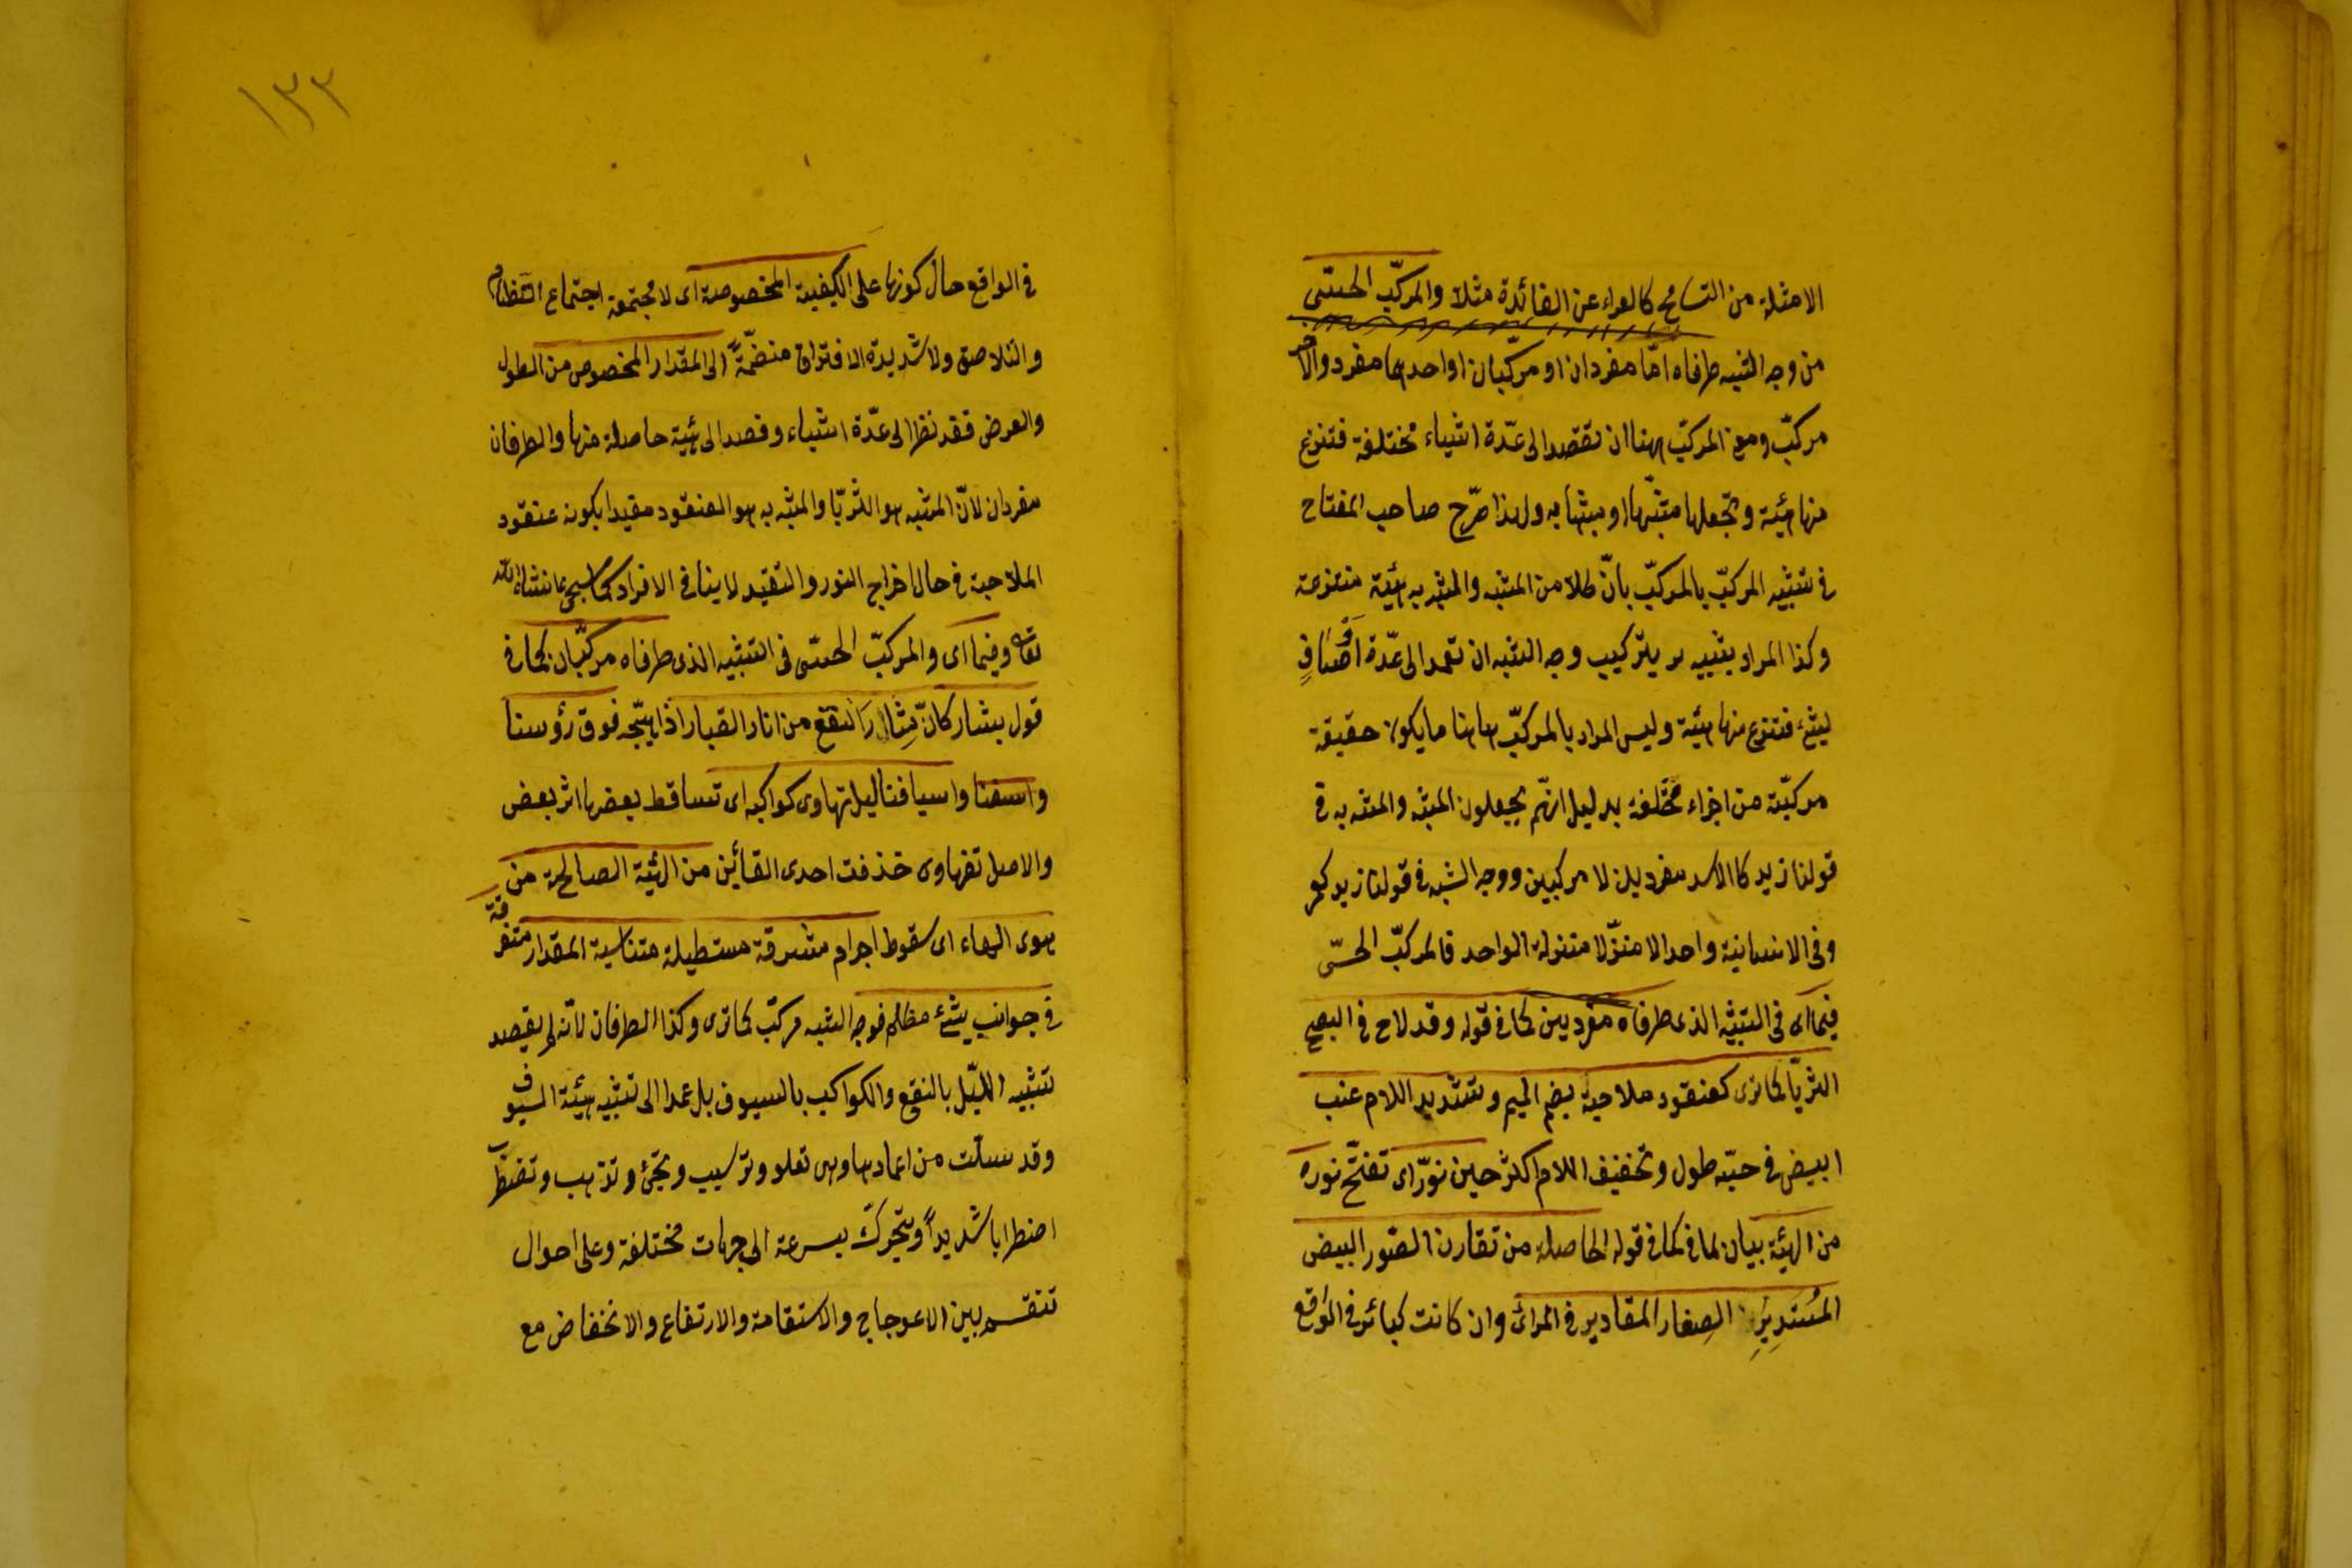 الامثلة من التسامح كالعراء عن الفائدة مثلا والمركّب الحسّي
من وجه الشبه طرفاه امّا مفردان او مركّبان او احدهما مفرد والآخر
مركّب ومعنى المركّب ههنا ان تقصد الى عدّة اشياء مختلفة فتنزع
منها هيئة وتجعلها مشبّها او مشبّها به ولهذا صرّح صاحب المفتاح
فى تشبيه المركّب بالمركّب بانّ كلا من المشبه والمشبه به هيئة منتزعة
وكذا المراد بتركيب وجه الشبه ان تعمد الى عدّة اوصاف
لشئ فتنزع منها هيئة وليس المراد بالمركّب هاهنا ما يكون حقيقة
مركبّة من اجزاء مختلفة بدليل انهّم يجعلون المشبه والمشبه به فى
قولنا زيد كالاسد مفردين لا مركبين ووجه الشبه فى قولنا زيد كعمرو
فى الانسانية واحدا لا منزّلا منزلة الواحد فالمركبّ الحسّى
فيما اى فى التشبيه الذى طرفاه مفردين كما فى قوله وقد لاح فى الصبح
الثريّا كما ترى كعنقود ملاحية بضم الميم وتشديد اللام عنب
ابيض فى حبّه طول وتخفيف اللام اكثر حين نوّرا اى تفتّح نوره
من الهيئة بيان لما فى كما فى قوله الحاصلة من تقارن الصّور البيض
المُسْتَدِيرَ الصِغار المقادير فى المرائ وان كانت كبائر فى الواقع
١٣٣
فى الواقع حال كونها على الكيفية المخصوصة اى لا مجتمعة اجتماع التظام
والتلاصق ولا شديدة الافتراق منضمّة الى المقدار المخصوص من الطول
والعرض فقد نظر الى عدّة اشياء وقصد الى هيئة حاصلة منها والطرفان
مفردان لانّ المشبه هو الثريّا والمشبه به هو العنقود مقيدا بكونه عنقود
الملاحية فى حال اخراج النور والتقيد لا ينافى الافراد كما سيجئ انشاء الله
تعالى وفيما اى والمركّب الحسّى فى التشبيه الذى طرفاه مركبّان كما فى
قول بشار كانّ مثار النقع من اثار الغبار اذا هيّجه فوق رؤسنا
واسيافنا ليل تهاوى كواكبه اى تساقط بعضها اثر بعض
والاصل تتهاوى حذفت احدى التائين من الهيئة الحاصلة من
هوى الهاء اى سقوط اجرام مشرقة مستطيلة متناسبة المقدار متفرقة
فى جوانب شئ مظلم فوجه الشبه مركّب كما ترى وكذا الطرفان لانّه لم يقصد
تشبيه الليّل بالنقع والكواكب بالسيوف بل عمدا الى تشبيه هيئة السيوف
وقد سلّت من اغمادها وهى تعلو وترسب وتجئ وتذهب وتضطرب
اضطرابا شديداً ويتحرك بسرعة الى جهات مختلفة وعلى احوال
تنقسم بين الاعوجاج والاستقامة والارتفاع والانخفاض مع